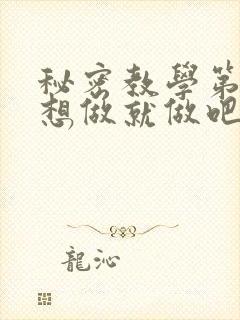 秘密教學第
想做就做吧
龍沁